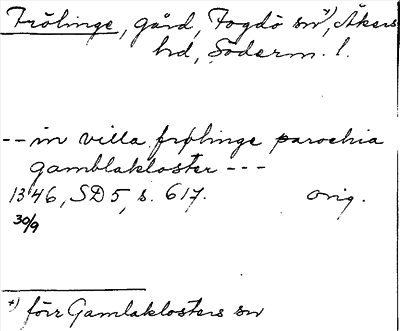 Frölinge, gård, Fogdö sn +), Åkers
hd, Söderm. l.
-- in villa frølinge parochia
gamblakloster ---
1346, SD 5, s. 617. orig.
30/9
+) förr Gamlaklosters sn